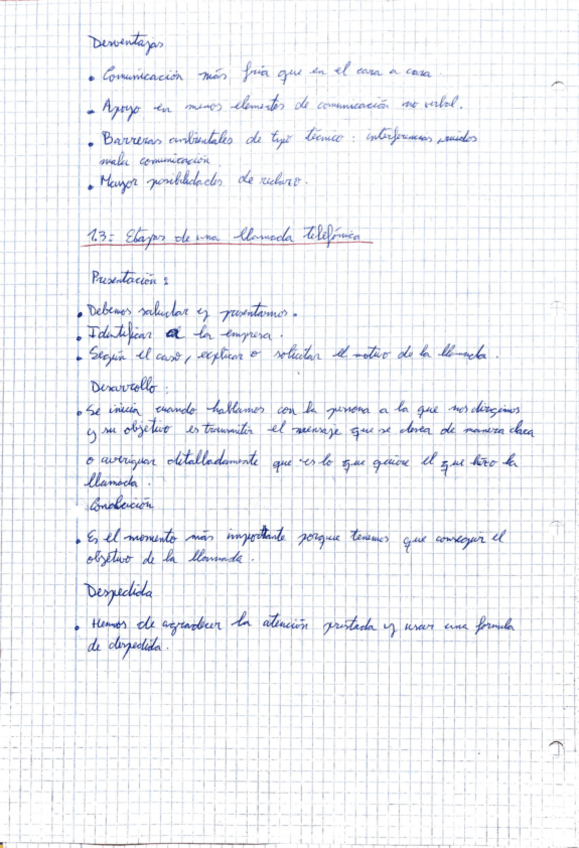 Desventajas
• Comunicación más fría que en el cara a cara.
• Apoyo en menos elementos de comunicación no verbal.
• Barreras ambientales de tipo técnico: interferencias, ruidos
mala comunicación.
• Mayor posibilidades de rechazo.
1.3: Etapas de una llamada telefónica
Presentación:
• Debemos saludar y presentarnos.
• Identificar a la empresa.
• Según el caso, explicar o solicitar el motivo de la llamada.
Desarrollo:
• Se inicia cuando hablamos con la persona a la que nos dirigimos
y su objetivo es transmitir el mensaje que se desea de manera clara
o averiguar detalladamente que es lo que quiere el que hizo la
llamada.
Conclusión
• Es el momento más importante porque tenemos que conseguir el
objetivo de la llamada.
Despedida
• Hemos de agradecer la atención prestada y usar una formula
de despedida.